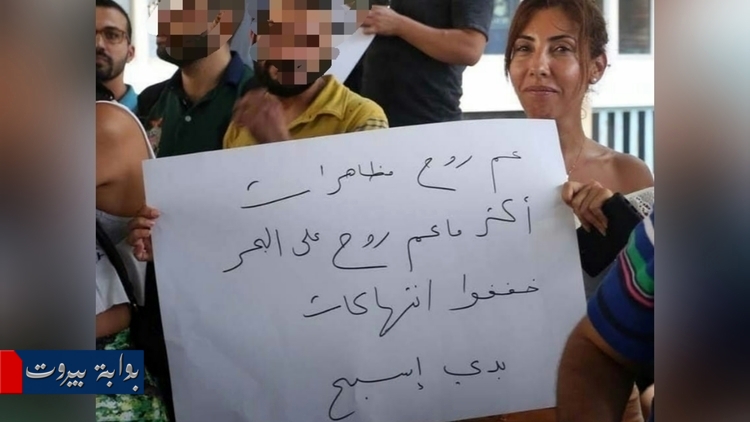 عم روح مظاهرات
أكتر ما عم روح على البحر
خففوا انتهاكات
بدي إسبح
بوابة بيروت